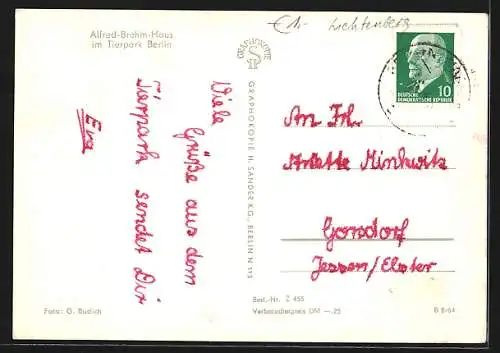 Alfred-Brehm-Haus
im Tierpark Berlin
€1,-
Lichtenberg
GRAPHOKOPIE
DEUTSCHE
DEMOKRATISCHE REPUBLIK
10
Viele
Grüße aus dem
Tierpark sendet Dir
Eva
GRAPHOKOPIE H. SANDER KG., BERLIN N 113
An Frl.
Anette Minkwitz
Gorsdorf
Jessen/Elster
Best.-Nr. Z 455
Verbraucherpreis DM —.25
Foto: G. Budich
B 8-64